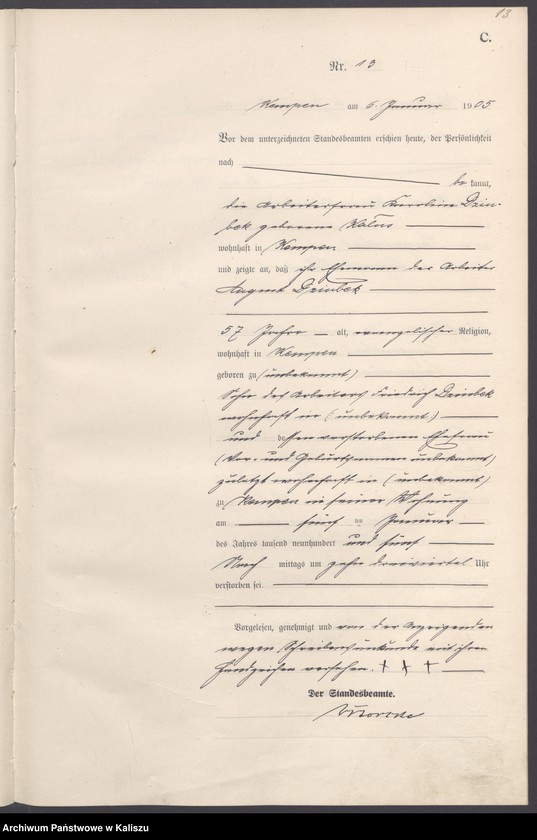 13
C.
Nr. 13
Kempen am 6. Januar 1905
Vor dem unterzeichneten Standesbeamten erschien heute, der Persönlichkeit
nach
bekannt,
die Arbeiterfrau Karoline Dzin-
bek geborene
wohnhaft in Kempen
und zeigte an, daß ihr Ehemann der Arbeiter
August Dzinbek
57 Jahre alt, evangelischer Religion,
wohnhaft in Kempen
geboren zu (unbekannt)
Sohn des Arbeiters Friedrich Dzinbek
wohnhaft in (unbekannt)
und dessen verstorbenen Ehefrau
(Vor- und Geburtsnamen unbekannt)
zuletzt wohnhaft in (unbekannt)
zu Kempen in seiner Wohnung
am fünf ten Januar
des Jahres tausend neunhundert und fünf
Nach mittags um zehn dreiviertel Uhr
verstorben sei.
Vorgelesen, genehmigt und von der Anzeigenden
wegen Schreibensunkunde mit ihren
Handzeichen versehen. + + +
Der Standesbeamte.
Archiwum Państwowe w Kaliszu